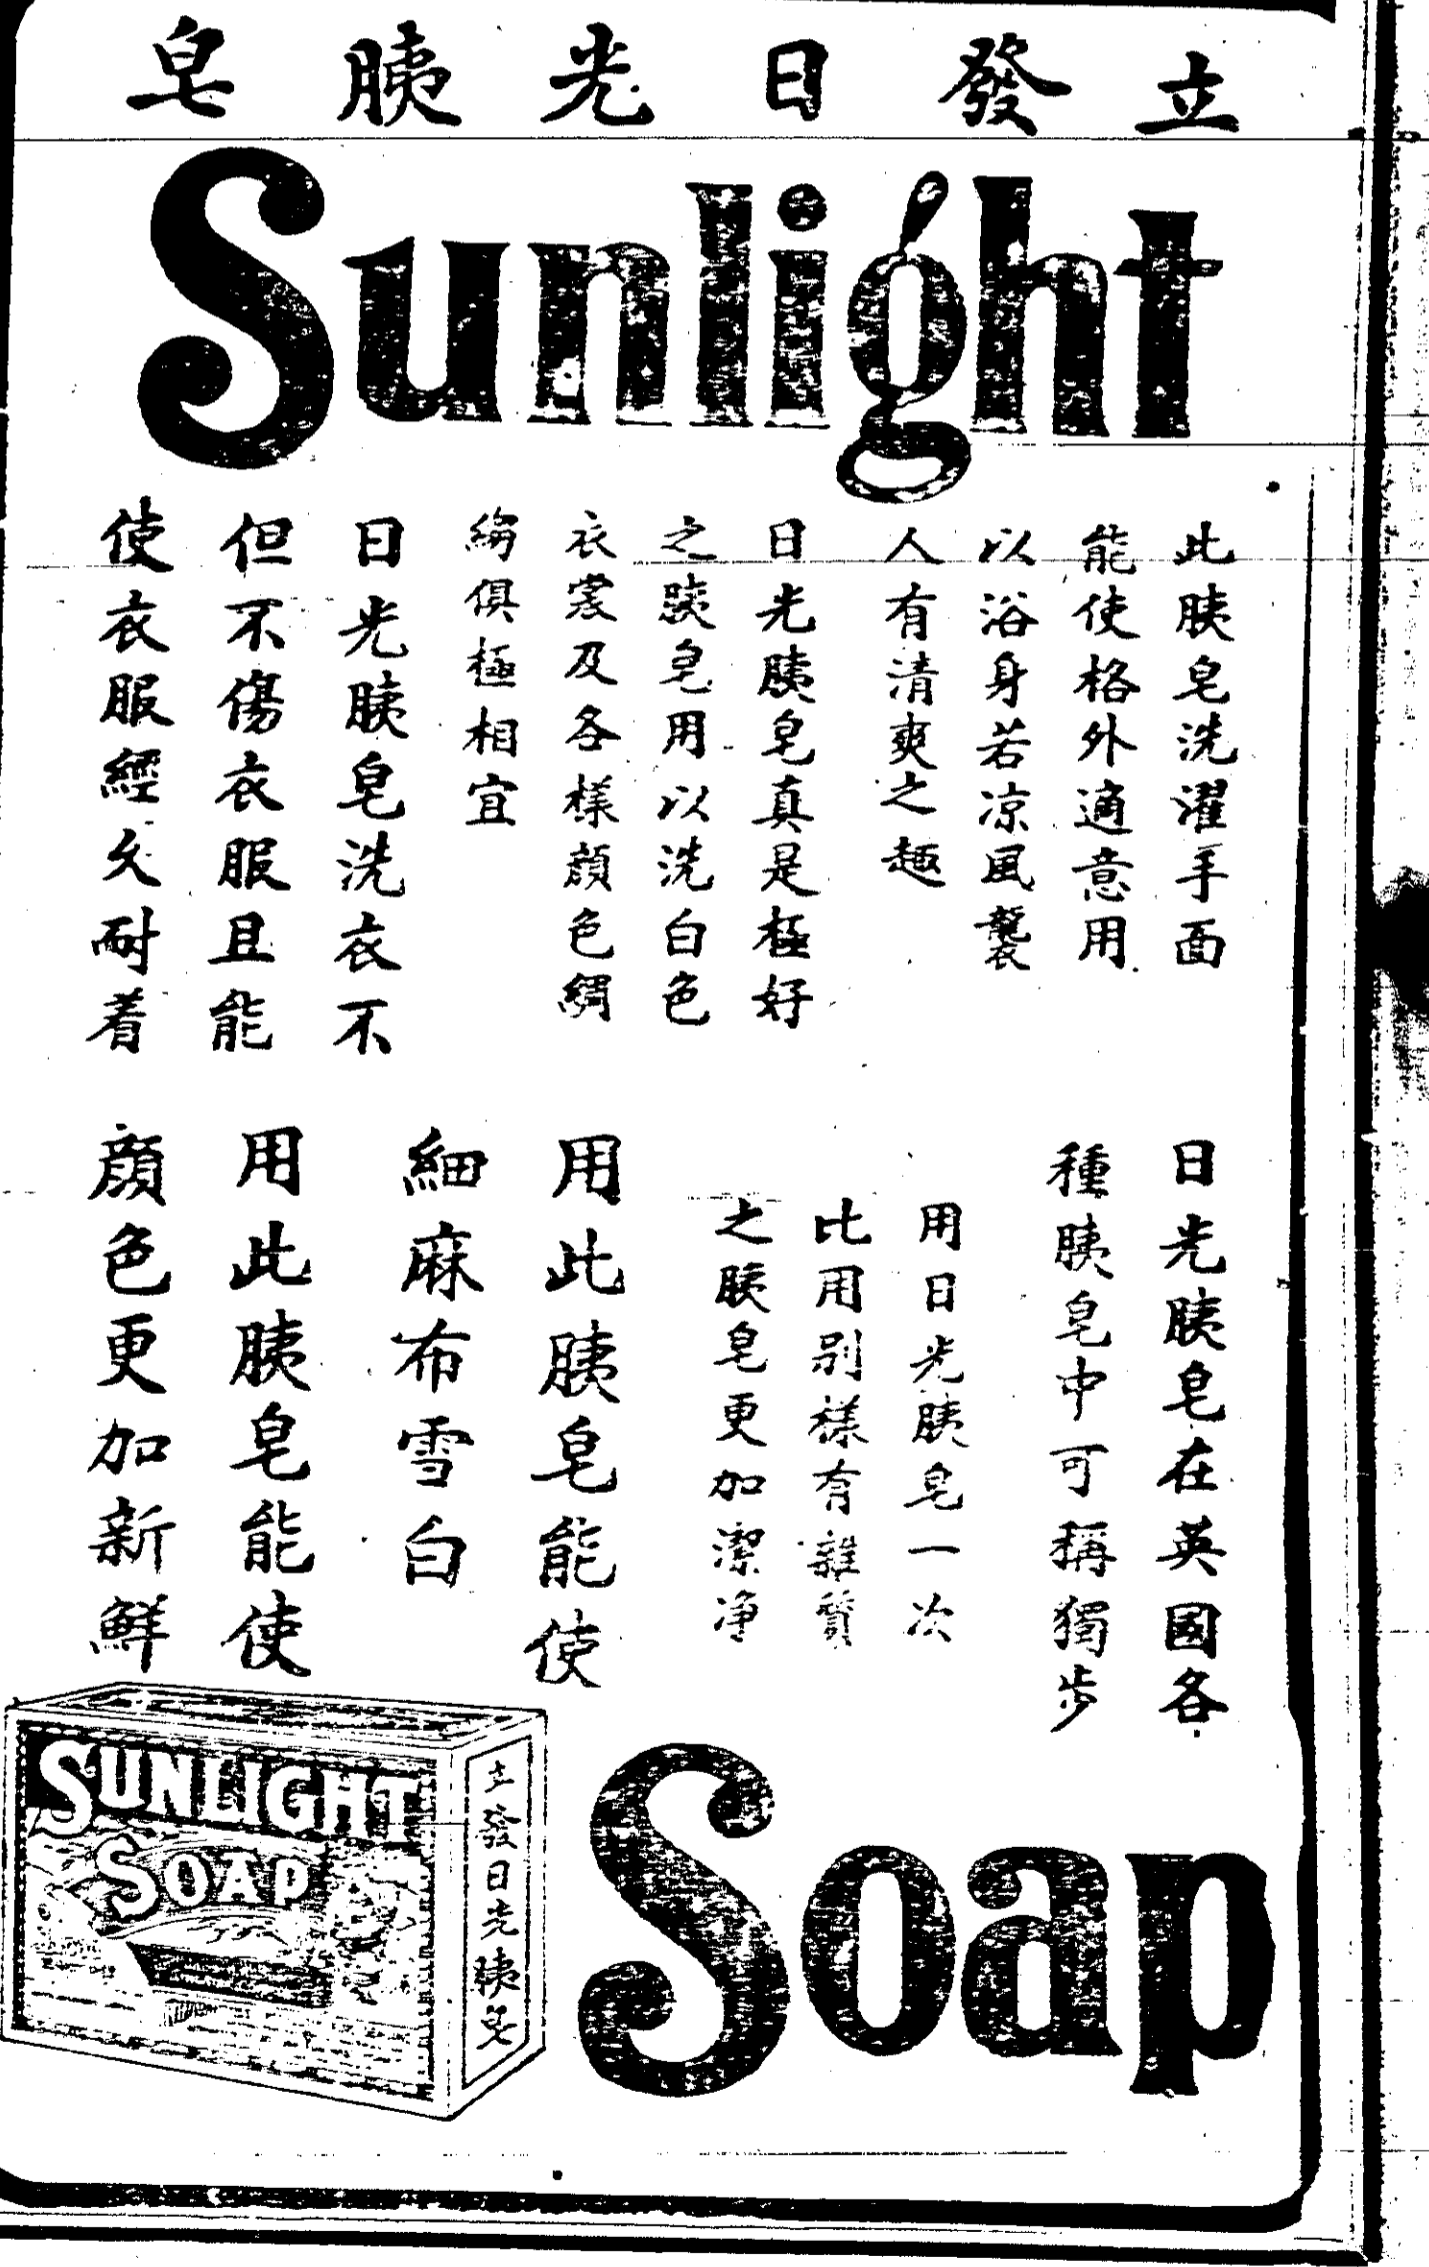 立發日光胰皂
Sunlight
此胰皂洗濯手面
能使格外適意用
以浴身若凉風襲
人有清爽之趣
日光胰皂真是極好
之胰皂用以洗白色
衣裳及各樣顔色綢
縐俱極相宜
日光胰皂洗衣不
但不傷衣服且能
使衣服經久耐着
日光胰皂在英國各
種胰皂中可稱獨步
用日光胰皂一次
比用别樣有雜質
之胰皂更加潔净
用此胰皂能使
細麻布雪白
用此胰皂能使
顔色更加新鮮
SUNLIGHT
SOAP
立發日光胰皂
Soap